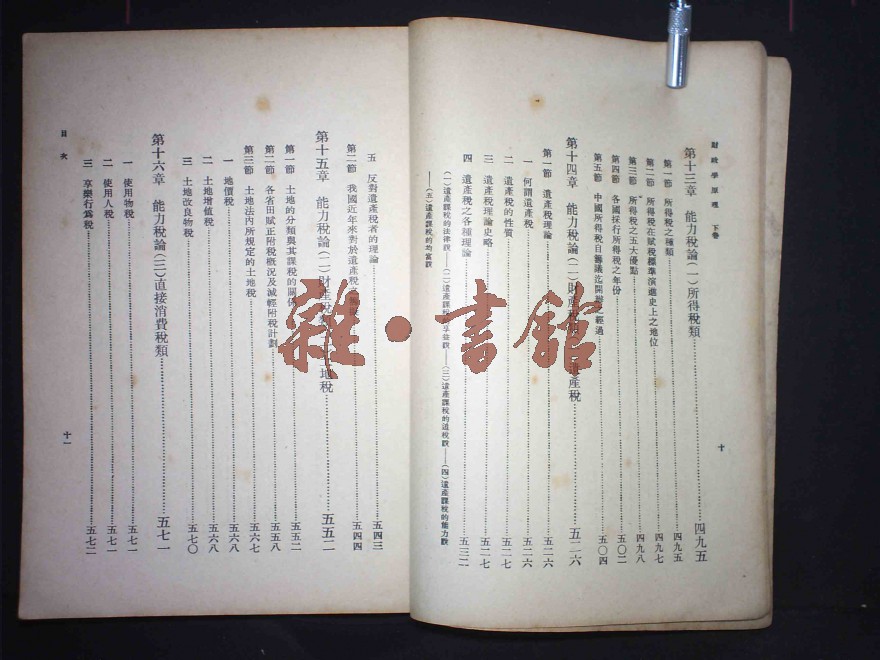 財政學原理 下卷
十
第十三章 能力稅論(一)所得稅類……四九五
第一節 所得稅之種類……四九五
第二節 所得稅在賦稅標準演進史上之地位……四九七
第三節 所得稅之五大優點……四九八
第四節 各國採行所得稅之年份……五〇二
第五節 中國所得稅自籌議迄開辦之經過……五〇四
第十四章 能力稅論(二)財產稅類 遺產稅……五二六
第一節 遺產稅理論……五二六
一 何謂遺產稅……五二六
二 遺產稅的性質……五二七
三 遺產稅理論史略……五二七
四 遺產稅之各種理論……五三二
(一)遺產課稅的法律說——(二)遺產課稅的 益說——(三)遺產課稅的追稅說——(四)遺產課稅的能力說
——(五)遺產課稅的均富說
五 反對遺產稅者的理論……五四三
第二節 我國近年來對於遺產稅……五四四
第十五章 能力稅論(二)財產稅類 地稅……五五二
第一節 土地的分類與其課稅的關係……五五二
第二節 各省田賦正附稅概況及減輕附稅計劃……五五八
第三節 土地法內所規定的土地稅……五六七
一 地價稅……五六八
二 土地增值稅……五六八
三 土地改良物稅……五七〇
第十六章 能力稅論(三)直接消費稅類……五七一
一 使用物稅……五七一
二 使用人稅……五七一
三 享樂行為稅……五七二
目次
十一
雜·書館